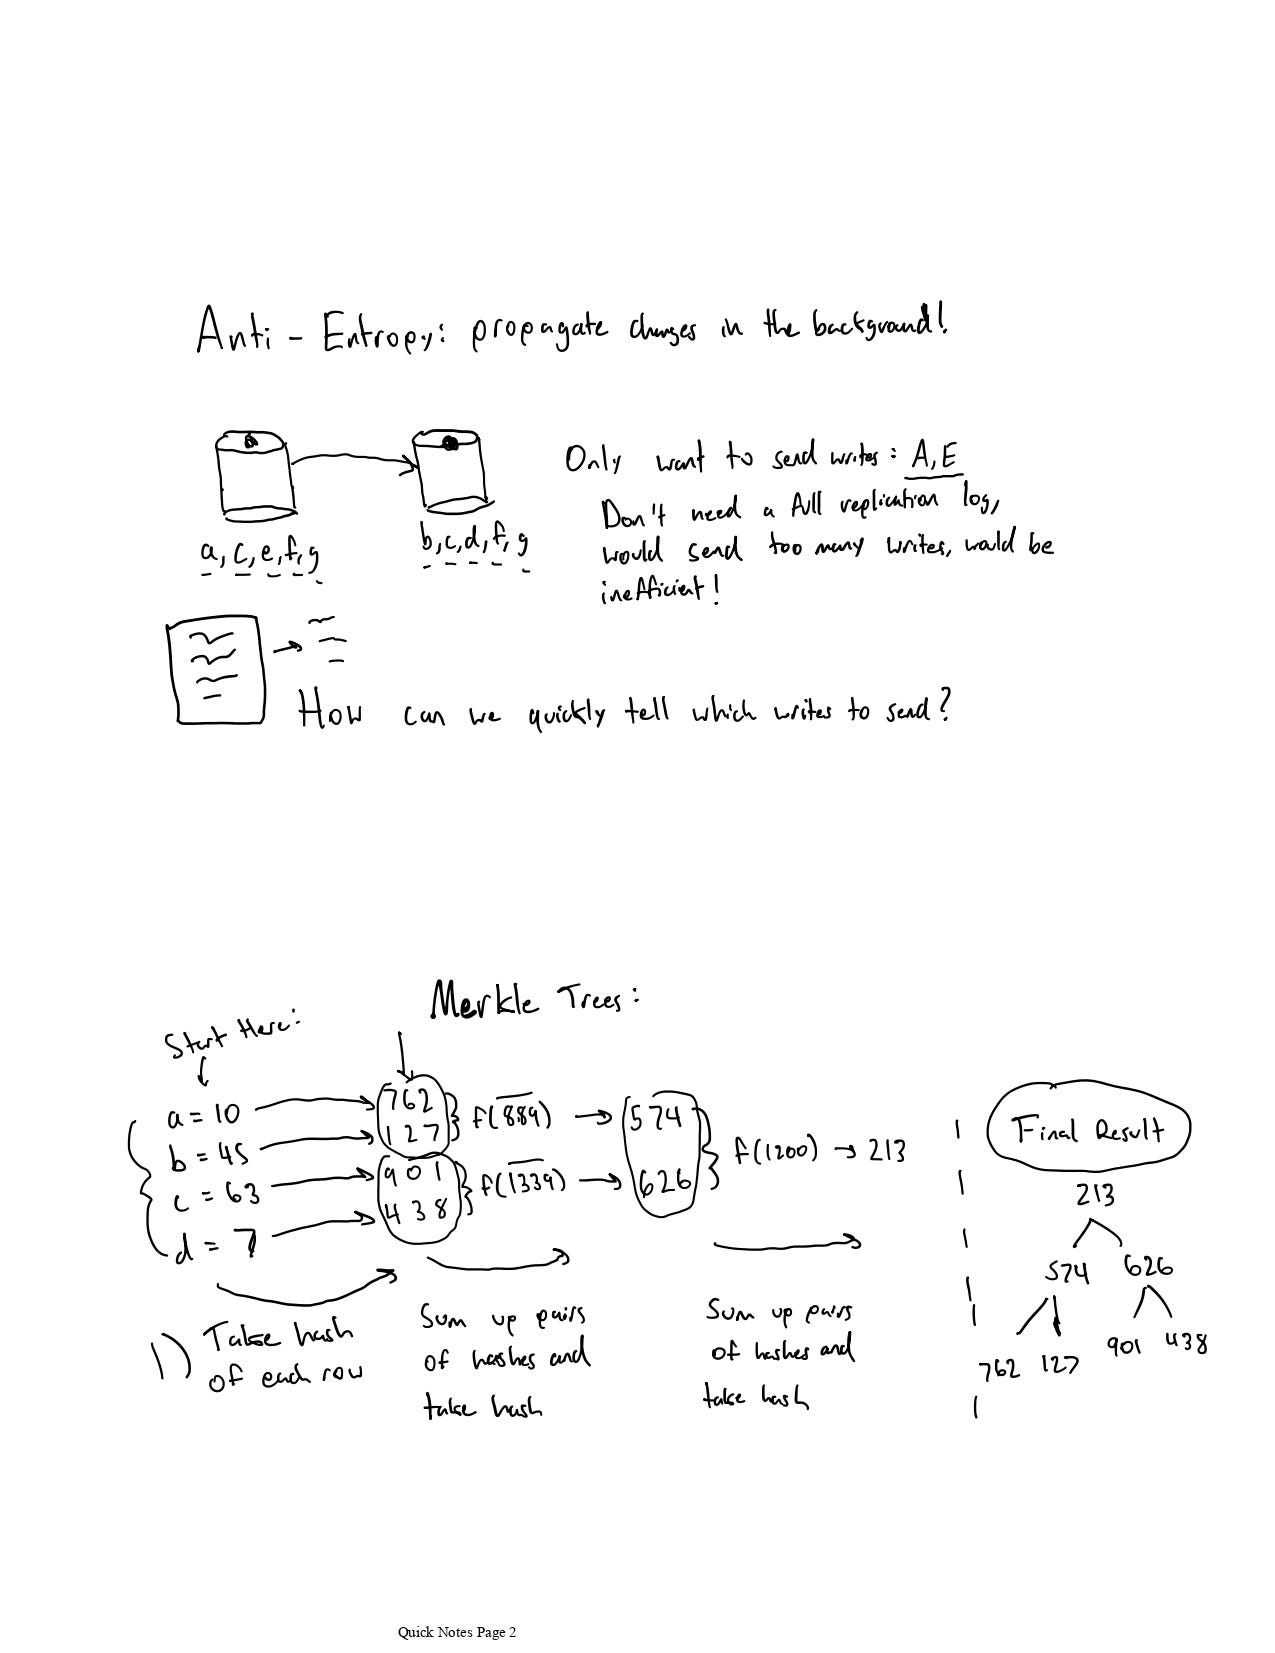 Anti - Entropy: propagate changes in the background!
Only want to send writes: A, E
Don't need a full replication log,
would send too many writes, would be
inefficient!
a, c, e, f, g
b, c, d, f, g
How can we quickly tell which writes to send?
Merkle Trees:
Start Here:
a = 10
b = 45
c = 63
d = 7
762
127
901
438
f(889)
f(1339)
574
626
f(1200) → 213
Final Result
213
574 626
762 127 901 438
1) Take hash
of each row
Sum up pairs
of hashes and
take hash
Sum up pairs
of hashes and
take hash
Quick Notes Page 2